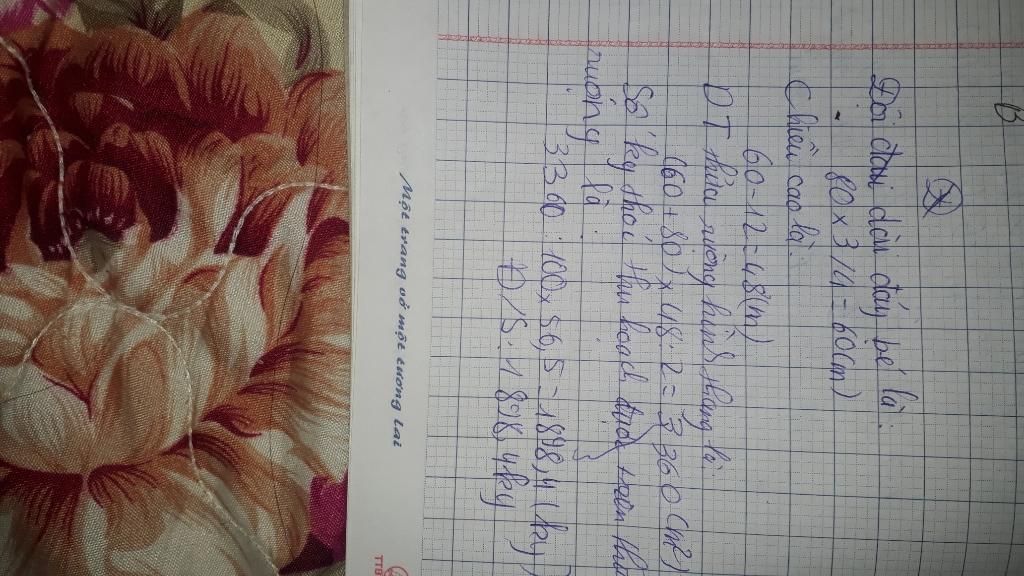 B
Độ dài dài đáy bé là:
80 x 3/4 = 60(m)
Chiều cao là:
60 - 12 = 48(m)
DT thửa ruộng hình thang là:
(60 + 80) x 48 : 2 = 3360 (m²)
Số kg thóc thu hoạch được trên thửa
ruộng là:
3360 : 100 x 56,5 = 1898,4 (kg)
Đ/S: 1898,4kg
Một trang vở một tương lai